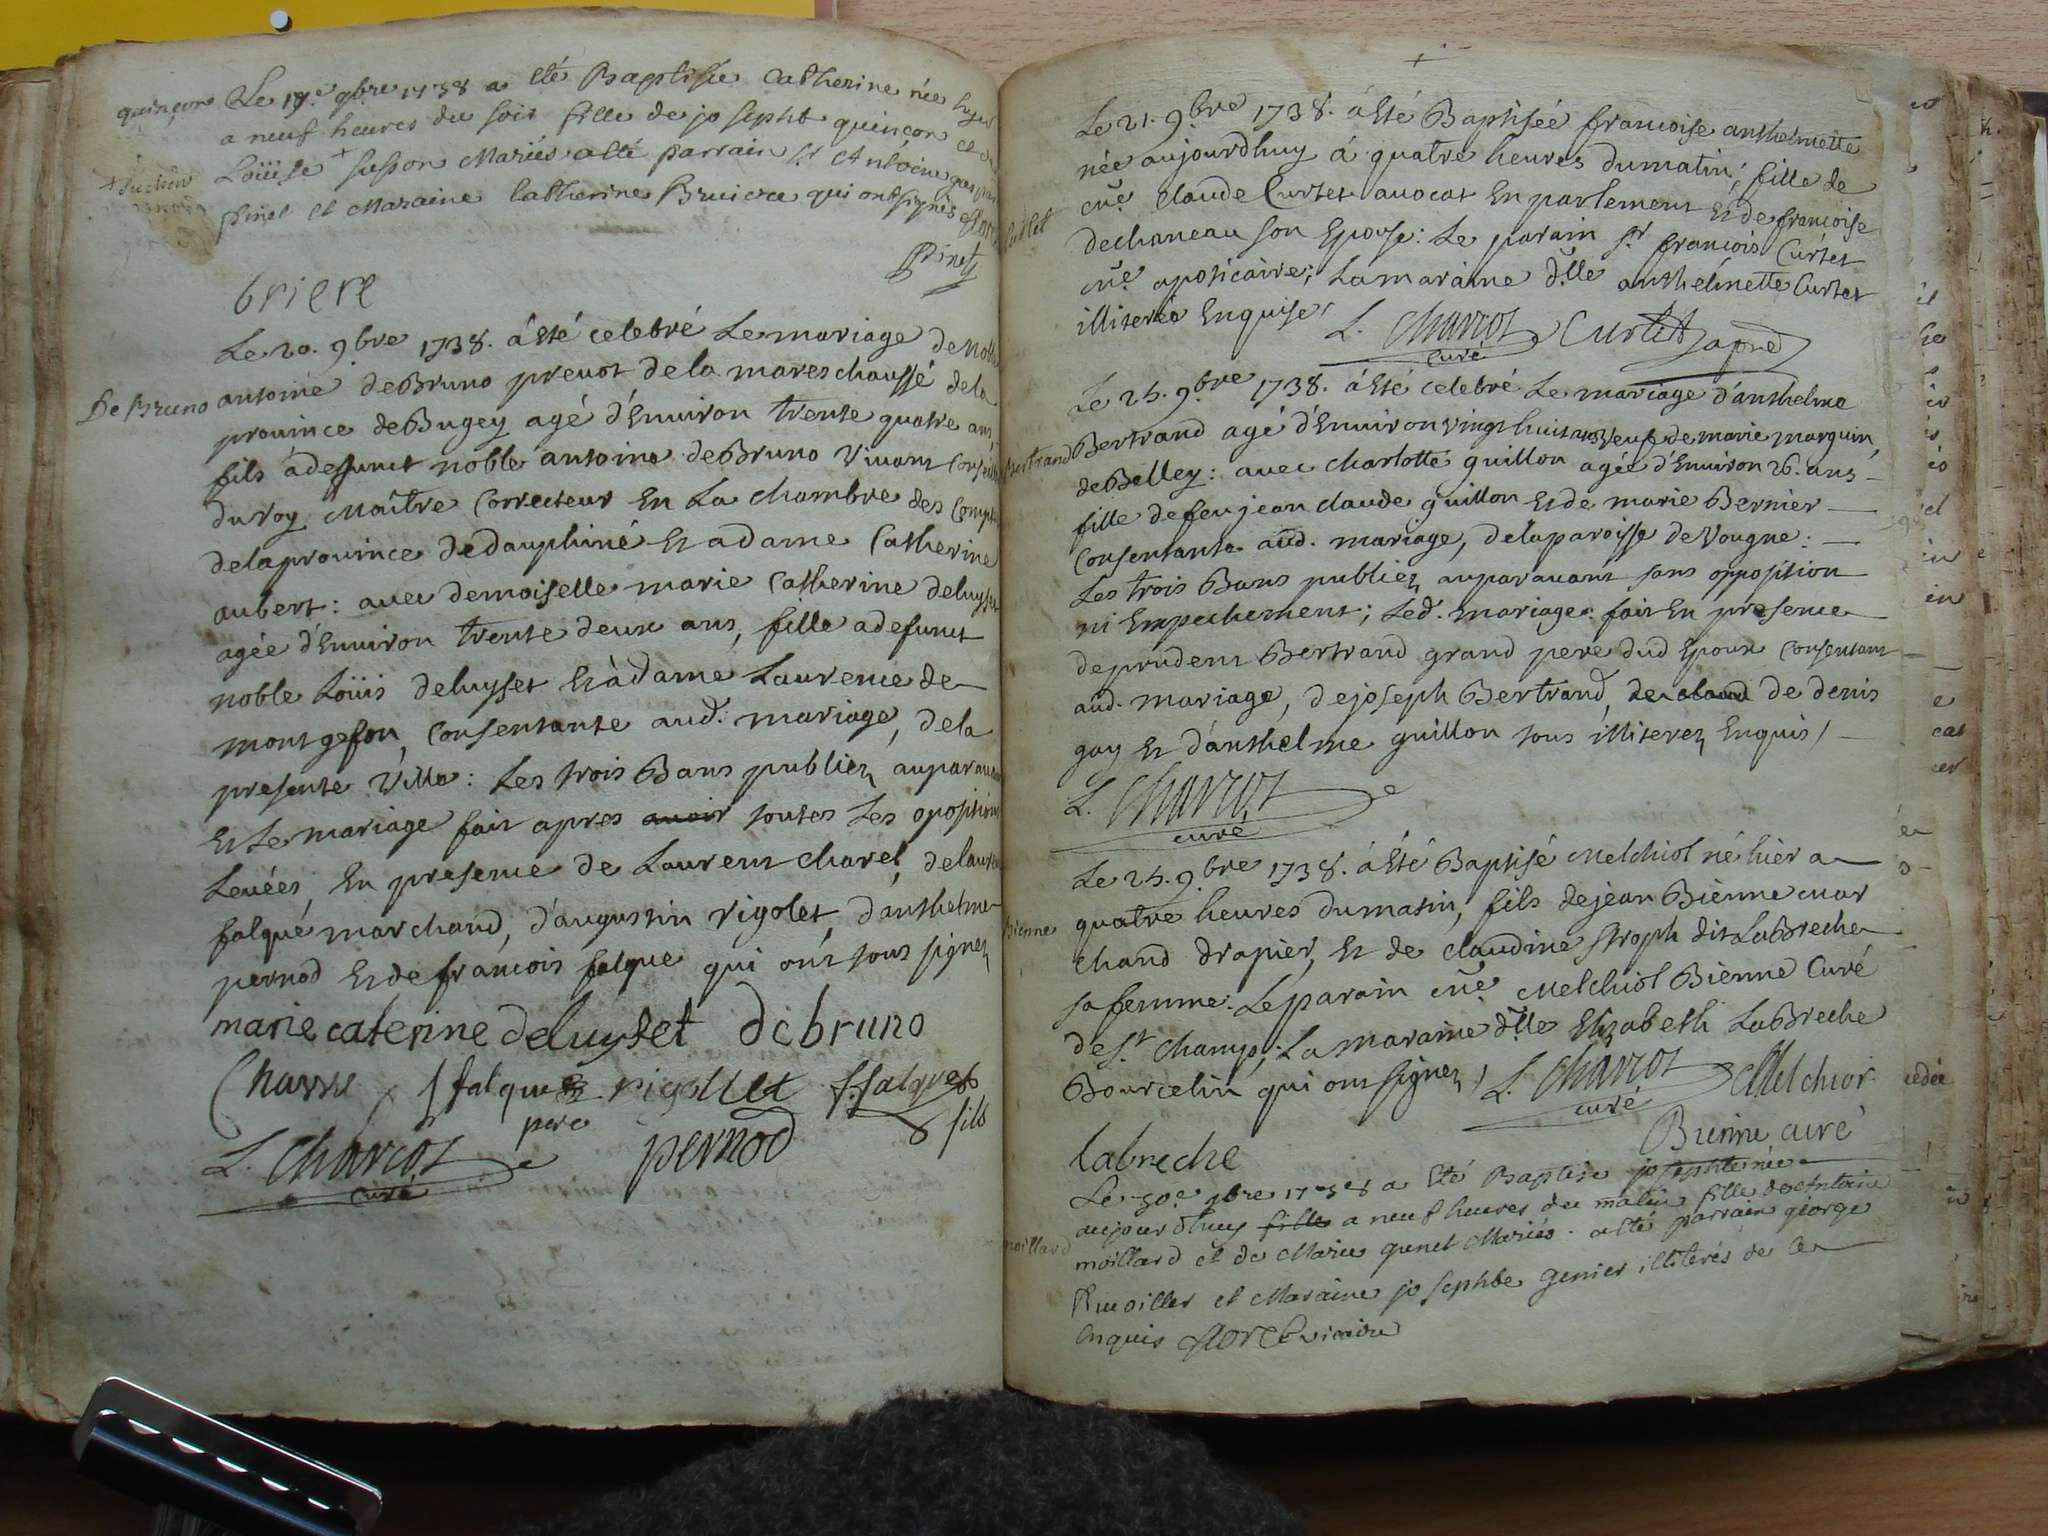 quinçon
Le 19e 9bre 1738 a eté Baptisée Catherine née hyer
a neuf heures du soir fille de josepht quinçon et de
Loüise + suspon Mariés a été parrain sr Antoine
pinet et Maraine Catherine Bruiere qui ont signés
Pinet
briere
De Bruno
Le 20. 9bre 1738. á Eté celebré Le mariage de Noble
antoine deBruno prevot de la mareschaussé de la
province deBugey agé d'Environ trente quatre ans,
fils à deffunct noble antoine deBruno Vivant Conseiller
du roy Maître Correcteur En La Chambre des Comptes
de la province de dauphiné Et a dame Catherine
aubert: avec demoiselle marie Catherine deluyset
agée d'Environ trente deux ans, fille a defunct
noble Loüis deluyset Et à dame Laurence de
montgefon, Consentante aud. mariage, de la
presente Ville: Les trois Bans publiez auparavant
Et Le mariage fait apres avoir toutes Les opositions
Levées, En presence de Laurent charet, de laurent
falque marchand, d'augustin rigolet, d'anthelme
pernod Et de francois falque qui ont tous signez
marie caterine deluyset debruno
falque rigollet f. falque
pere fils
L. Charcot pernod
curé
Curtet
Le 21. 9bre 1738. á Eté Baptisée francoise anthelmette
née aujourdhuy á quatre heures du matin, fille de
me Claude Curtet avocat En parlement Et de francoise
dechaneau son Epouse: Le parain sr francois Curtet
me apoticaire; La maraine dlle anthelmette Curtet
illiterée Enquise
L. Charcot Curtet
curé
Bertrand
Le 25. 9bre 1738. á Eté celebré Le mariage d'anthelme
Bertrand agé d'Environ vingt huit ans veuf de marie marguin,
de Belley: avec charlotte guillon agée d'Environ 26. ans
fille de feu jean claude guillon Et de marie Bernier
Consentante aud. mariage, de la paroisse de Vougne:
Les trois Bans publiez auparavant sans opposition
ni Empechement; Led. mariage fait En presence
de prudent Bertrand grand pere dud Epoux Consentant
aud. mariage, de joseph Bertrand, de claud de denis
gay Et d'anthelme guillon tous illiterez Enquis /
L. Charcot
curé
Bienne
Le 25. 9bre 1738. á Eté Baptisé Melchiol né hier a
quatre heures du matin, fils de jean Bienne mar
chand drapier, Et de Claudine Stroph dit LaBreche
sa femme: Le parain me Melchiol Bienne Curé
de st champ; La maraine dlle Elizabeth LaBreche
Bourcelin qui ont signez / L. Charcot Melchior
curé
Bienne curé
labreche
moillard
Le 30e 9bre 1738 a Eté Baptisée josephte née
aujourdhuy fille a neuf heures du matin fille de Antoine
moillard et de Marie quenet Mariés. a été parrain george
et Maraine josephte genier illiterés de ce
Enquis vicaire